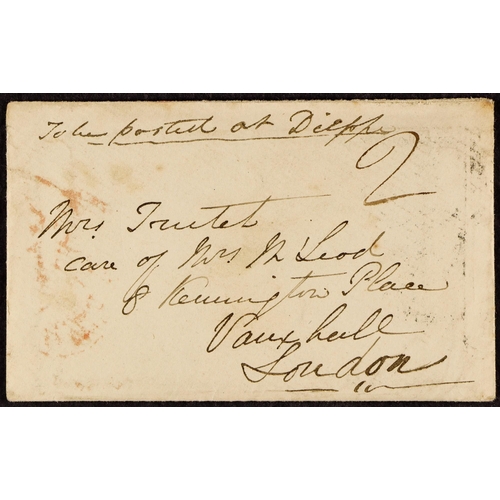 To be posted at Dieppe
2
Mrs. Trustet
care of Mrs McLeod
8 Kennington Place
Vauxhall
London